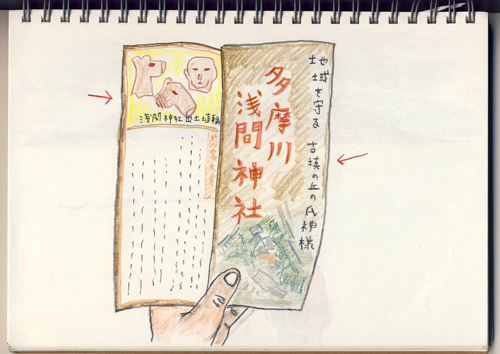 地域を守る 古墳の丘の氏神様
多摩川
浅間神社
浅間神社出土埴輪